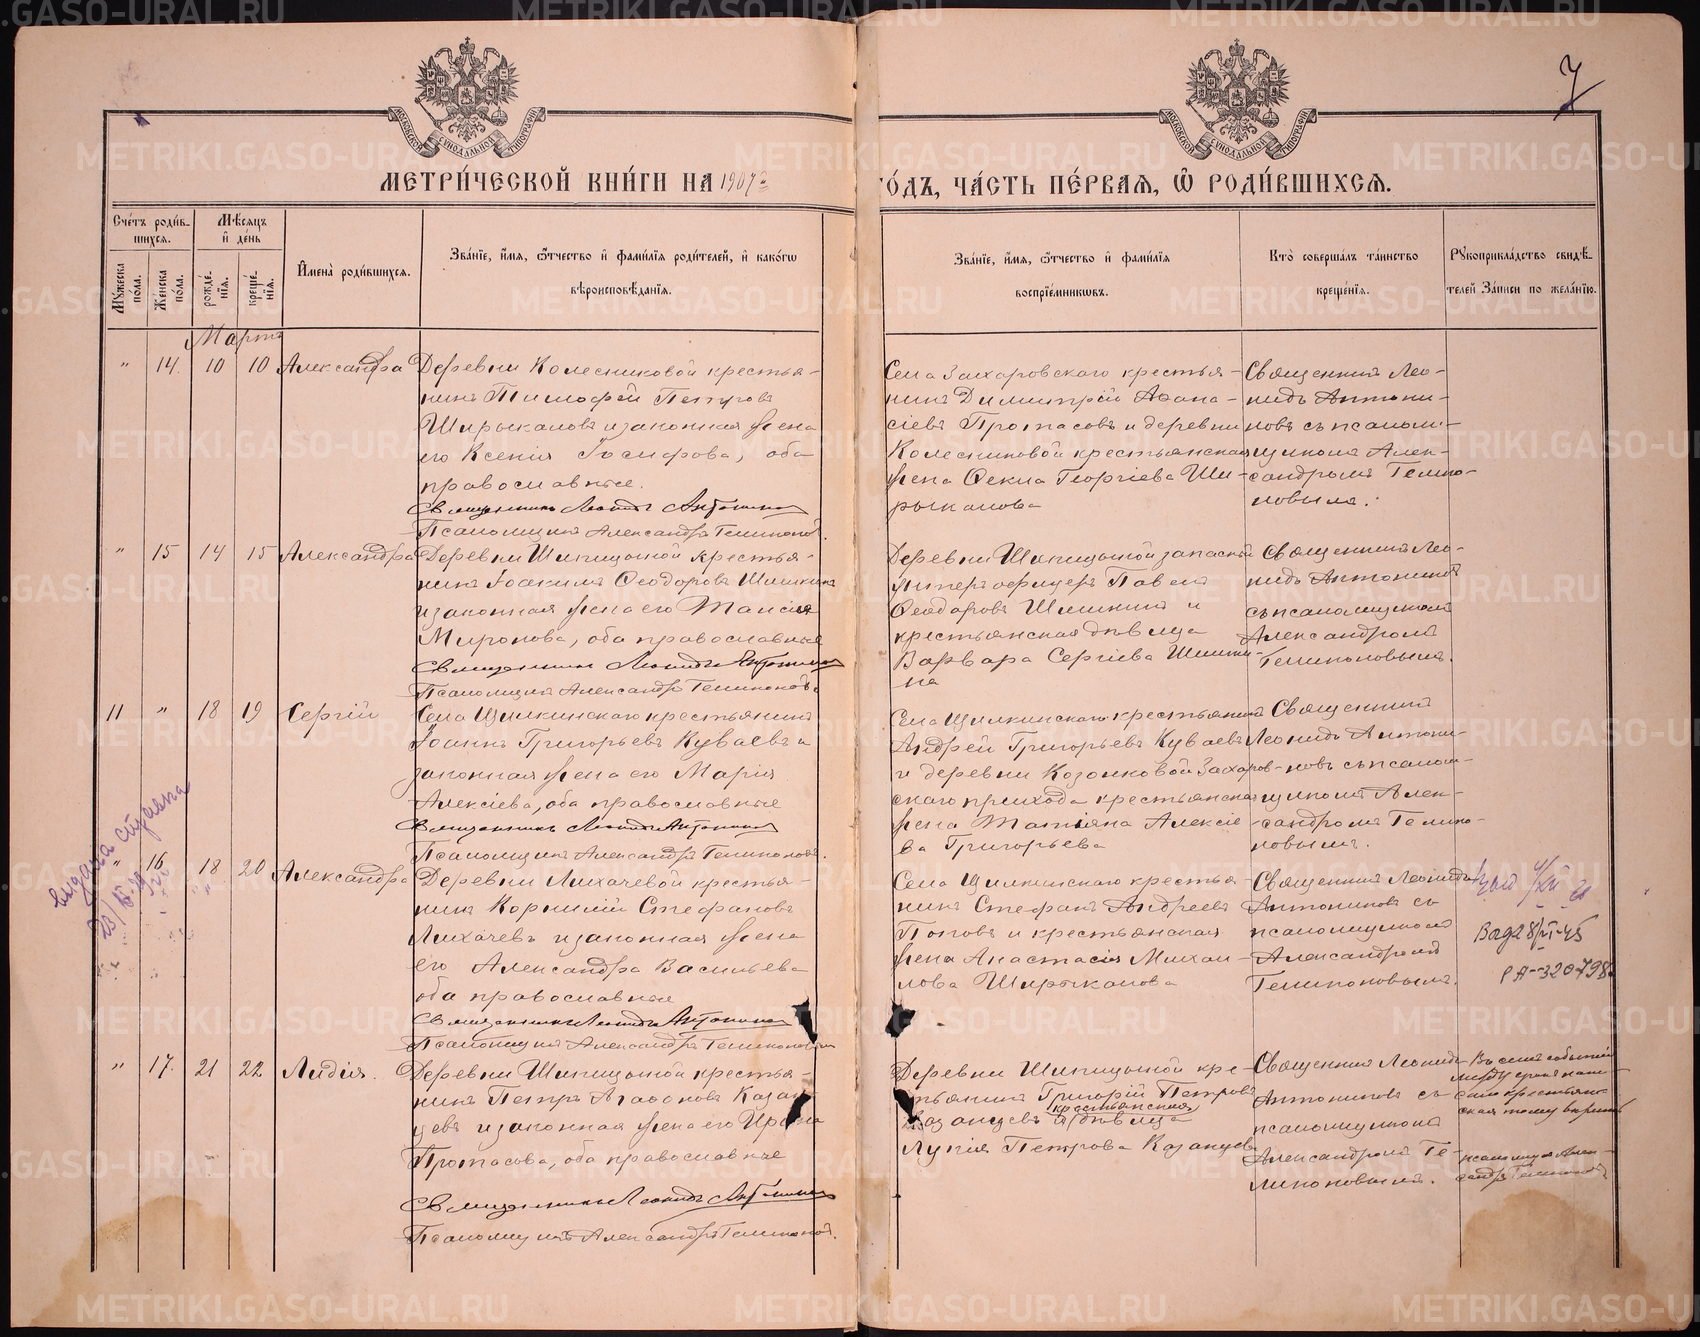 7
МЕТРИ́ЧЕСКОЙ КНИ́ГИ НА 1907 й
ГО́ДЪ, ЧА́СТЬ ПЕ́РВАЯ, Ѡ҆ РОДИ́ВШИХСЯ.
Счéтъ роди́в-
шихся.
Мѣ́сяцъ
и҆ де́нь
Мꙋ́жеска
по́ла.
Же́нска
по́ла.
рожде́-
нїя.
креще́-
нїя.
И҆мена̀ роди́вшихся.
Зва́нїе, и҆́мя, ѻ҆́тчество и҆ фами́лїя роди́телей, и҆ како́гѡ
вѣроисповѣ́данїя.
Зва́нїе, и҆́мя, ѻ҆́тчество и҆ фами́лїя
воспрїе́мниковъ.
Кто̀ соверша́лъ та́инство
креще́нїя.
Рꙋкоприкла́дство свидѣ́-
телей За́писи по жела́нїю.
Марта
" 14. 10 10 Александра
Деревни Колесниковой крестья-
нинъ Тимофей Петровъ
Ширыкаловъ и законная жена
его Ксенія Іосифова, оба
православные.
Священникъ Леонидъ Антониновъ
Псаломщикъ Александръ Темноновъ.
Села Захаровскаго крестья-
нинъ Димитрій Аѳана-
сіевъ Протасовъ и деревни
Колесниковой крестьянская
жена Ѳекла Георгіева Ши-
рыкалова
Священникъ Лео-
нидъ Антони-
новъ съ псалом-
щикомъ Алек-
сандромъ Темно-
новымъ.
" 15 14 15 Александра
Деревни Шипицыной крестья-
нинъ Іоакимъ Ѳеодоровъ Шишкинъ
и законная жена его Таисія
Миронова, оба православные
Священникъ Леонидъ Антониновъ
Псаломщикъ Александръ Темноновъ.
Деревни Шипицыной запасный
унтеръ офицеръ Павелъ
Ѳеодоровъ Шишкинъ и
крестьянская дѣвица
Варвара Сергіева Шишки-
на
Священникъ Лео-
нидъ Антониновъ
съ псаломщикомъ
Александромъ
Темноновымъ.
11 " 18 19 Сергій
Села Щилкинскаго крестьянинъ
Іоаннъ Григорьевъ Куваевъ и
законная жена его Марія
Алексіева, оба православные
Священникъ Леонидъ Антониновъ
Псаломщикъ Александръ Темноновъ.
Села Щилкинскаго крестьянинъ
Андрей Григорьевъ Куваевъ
и деревни Казонковой Захаров-
скаго прихода крестьянская
жена Татіана Алексіе-
ва Григорьева
Священникъ
Леонидъ Антони-
новъ съ псалом-
щикомъ Алек-
сандромъ Темно-
новымъ.
выдана справка
" 16 18 20 Александра
Деревни Лихачевой крестья-
нинъ Корнилій Стефановъ
Лихачевъ и законная жена
его Александра Васильева
оба православные
Священникъ Леонидъ Антониновъ
Псаломщикъ Александръ Темноновъ
Села Щилкинскаго крестья-
нинъ Стефанъ Андреевъ
Поповъ и крестьянская
жена Анастасія Михаи-
лова Ширыкалова
Священникъ Леонидъ
Антониновъ съ
псаломщикомъ
Александромъ
Темноновымъ.
Выд 28/VI-45
РА-320798
" 17. 21 22 Лидія.
Деревни Шипицыной крестья-
нинъ Петръ Агаѳоновъ Казан-
цевъ и законная жена его Ирина
Протасова, оба православные
Священникъ Леонидъ Антониновъ
Псаломщикъ Александръ Темноновъ.
Деревни Шипицыной кре-
стьянинъ Григорій Петровъ
Казанцевъ и крестьянская дѣвица
Лукія Петрова Казанцева
Священникъ Леонидъ
Антониновъ съ
псаломщикомъ
Александромъ Те-
мноновымъ.
псаломщикъ Алек-
сандръ Темноновъ
METRIKI.GASO-URAL.RU